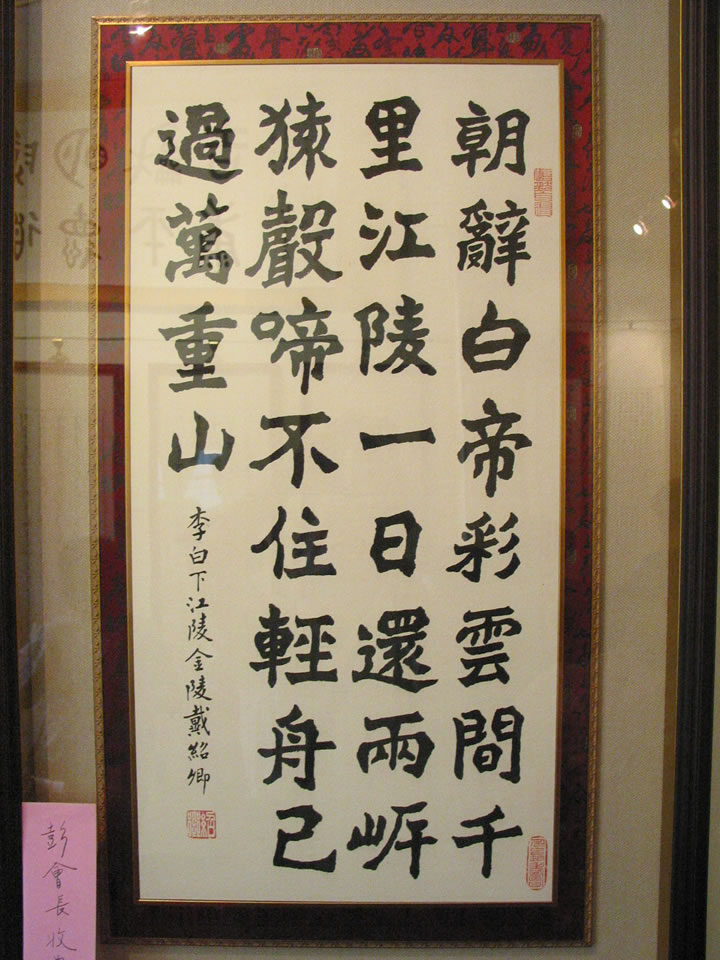 朝辭白帝彩雲間千
里江陵一日還兩岸
猿聲啼不住輕舟已
過萬重山
李白下江陵金陵戴紹卿
彭會長收